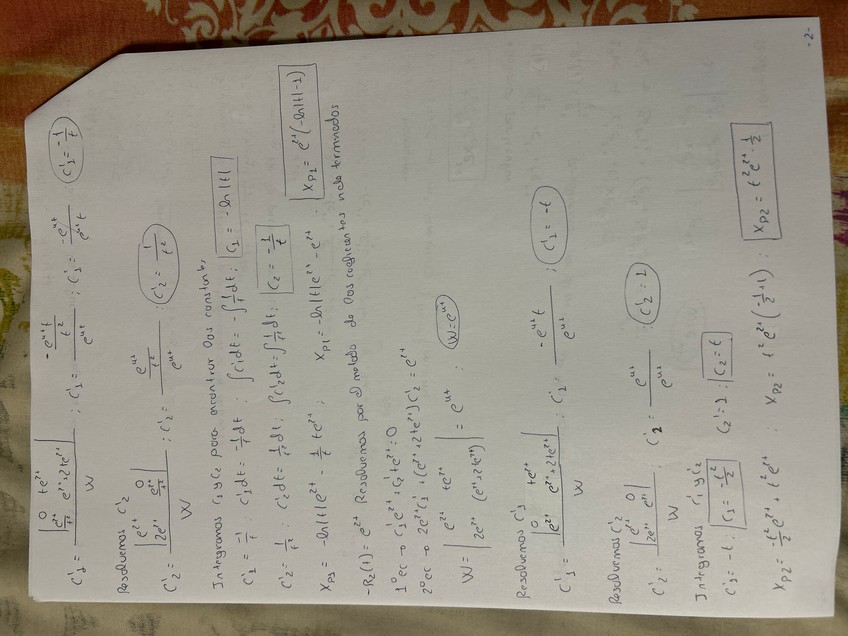 C'₁ = | 0 te²ᵗ ; e²ᵗ/t² e²ᵗ+2te²ᵗ | / W ; C'₁ = (-e⁴ᵗt/t²) / e⁴ᵗ ; C'₁ = -e⁴ᵗ / e⁴ᵗt ; C'₁ = -1/t
Resolvemos C'₂
C'₂ = | e²ᵗ 0 ; 2e²ᵗ e²ᵗ/t² | / W ; C'₂ = (e⁴ᵗ/t²) / e⁴ᵗ ; C'₂ = 1/t²
Integramos C₁ y C₂ para encontrar las constantes
C'₁ = -1/t ; C'₁dt = -1/t dt ; ∫C'₁dt = -∫1/t dt ; C₁ = -ln|t|
C'₂ = 1/t² ; C'₂dt = 1/t² dt ; ∫C'₂dt = ∫1/t² dt ; C₂ = -1/t
Xp₁ = -ln|t|e²ᵗ - 1/t te²ᵗ ; Xp₁ = -ln|t|e²ᵗ - e²ᵗ ; Xp₁ = e²ᵗ(-ln|t|-1)
-R₂(t) = e²ᵗ Resolvemos por el metodo de los coeficientes indeterminados
1º ec → C'₁e²ᵗ + C'₂te²ᵗ = 0
2º ec → 2e²ᵗC'₁ + (e²ᵗ+2te²ᵗ)C'₂ = e²ᵗ
W = | e²ᵗ te²ᵗ ; 2e²ᵗ (e²ᵗ+2te²ᵗ) | = e⁴ᵗ ; W = e⁴ᵗ
Resolvemos C'₁
C'₁ = | 0 te²ᵗ ; e²ᵗ e²ᵗ+2te²ᵗ | / W ; C'₁ = -e⁴ᵗt / e⁴ᵗ ; C'₁ = -t
Resolvemos C'₂
C'₂ = | e²ᵗ 0 ; 2e²ᵗ e²ᵗ | / W ; C'₂ = e⁴ᵗ / e⁴ᵗ ; C'₂ = 1
Integramos C'₁ y C'₂
C'₁ = -t ; C₁ = -t²/2 C'₂ = 1 ; C₂ = t
Xp₂ = -t²/2 e²ᵗ + t²e²ᵗ ; Xp₂ = t²e²ᵗ(-1/2+1) ; Xp₂ = t²e²ᵗ·1/2
-2-